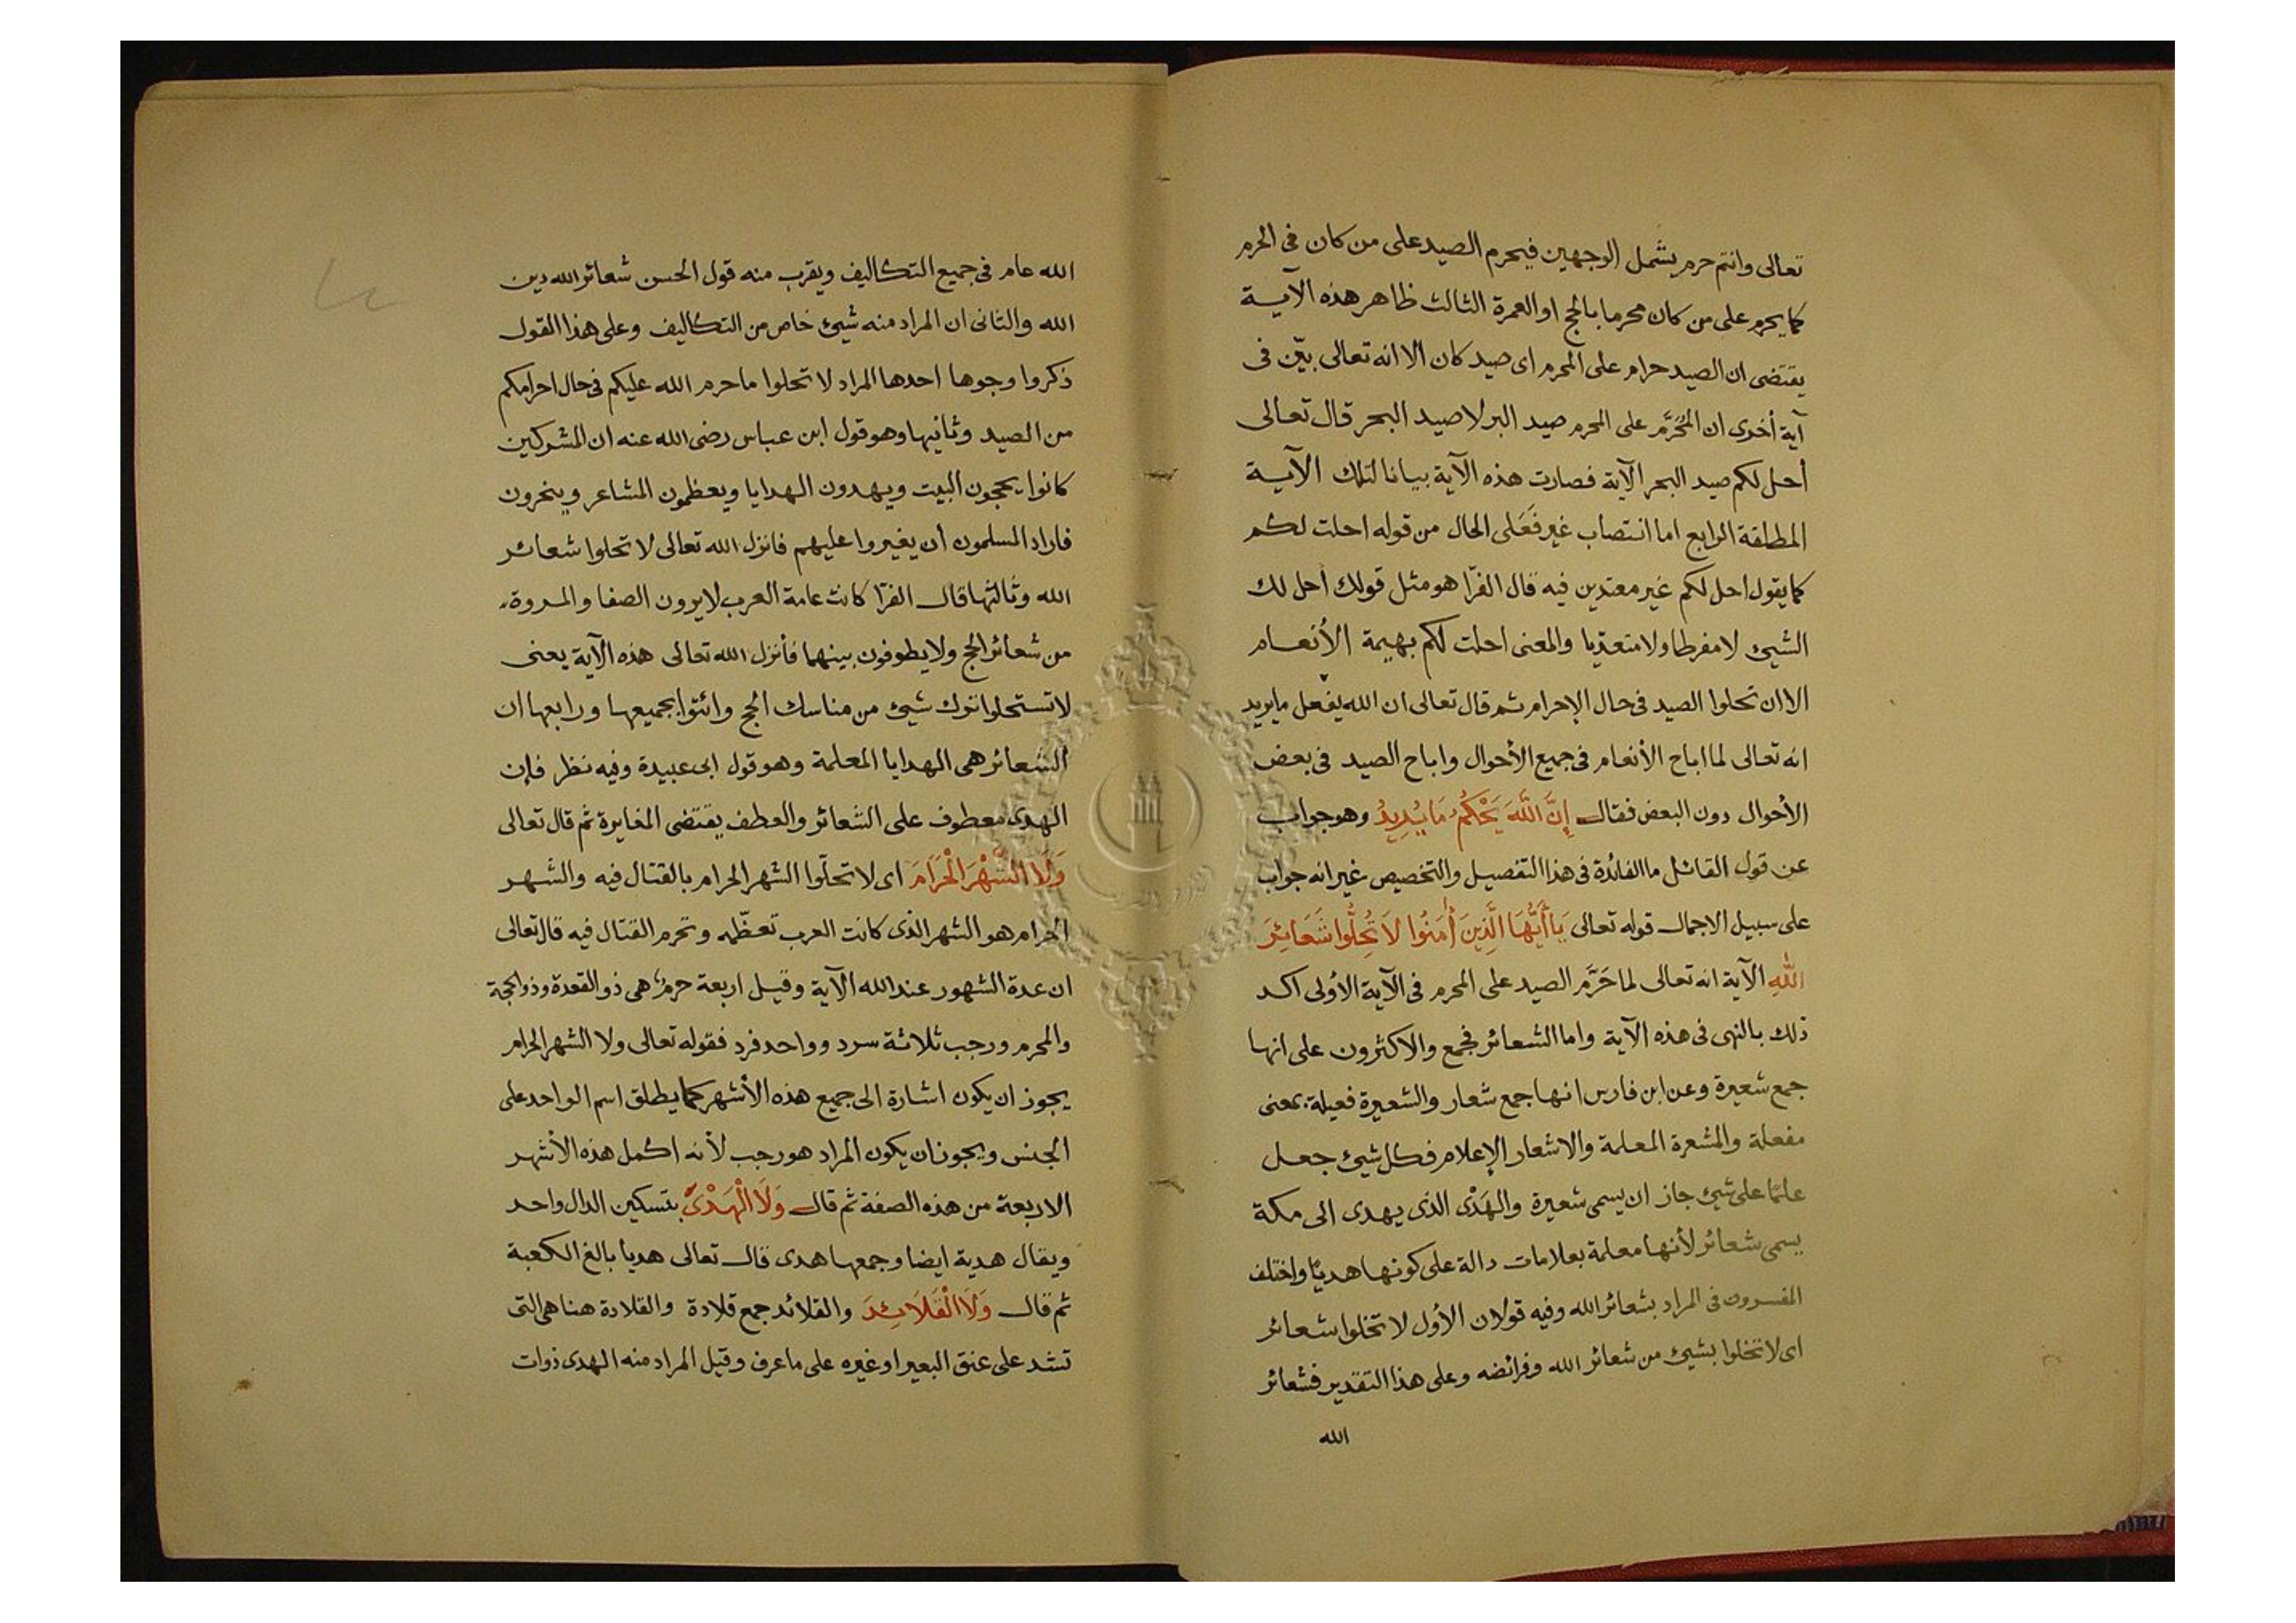 تعالى وانتم حرم يشمل الوجهين فيحرم الصيد على من كان فى الحرم
كما يحرم على من كان محرما بالحج او العمرة الثالث ظاهر هذه الآية
يقتضى ان الصيد حرام على المحرم اى صيد كان الا انه تعالى بيّن فى
آية أخرى ان المُحَرَّم على المحرم صيد البر لا صيد البحر قال تعالى
أحل لكم صيد البحر الآية فصارت هذه الآية بيانا لتلك الآية
المطلقة الرابع اما انتصاب غير فَعَلى الحال من قوله احلت لكم
كما يقول احل لكم غير معتدين فيه قال الفرّا هو مثل قولك أحل لك
الشيئ لا مفرطا ولا متعدّيا والمعنى احلت لكم بهيمة الأنعام
الا ان تحلوا الصيد فى حال الإحرام ثم قال تعالى ان الله يفعل ما يريد
انه تعالى لما اباح الأنعام فى جميع الأحوال واباح الصيد فى بعض
الأحوال دون البعض فقال إِنَّ اللَّهَ يَحْكُمُ مَا يُرِيدُ وهو جواب
عن قول القائل ما الفائدة فى هذا التفصيل والتخصيص غير انه جواب
على سبيل الاجمال قوله تعالى يَا أَيُّهَا الَّذِينَ أَمَنُوا لَا تُحِلُّوا شَعَائِرَ
اللَّهِ الآية انه تعالى لما حَرَّم الصيد على المحرم فى الآية الأولى اكد
ذلك بالنهى فى هذه الآية واما الشعائر فجمع والاكثرون على انها
جمع شعيرة وعن ابن فارس انها جمع شعار والشعيرة فعيلة بمعنى
مفعلة والمشعرة المعلمة والاشعار الإعلام فكل شيئ جعل
علمًا على شيئ جاز ان يسمى شعيرة والهَدْى الذى يهدى الى مكة
يسمى شعائر لأنها معلمة بعلامات دالة على كونها هديًا واختلف
المفسرون فى المراد بشعائر الله وفيه قولان الأول لا تخلوا شعائر
اى لا تخلوا بشيئ من شعائر الله وفرائضه وعلى هذا التقدير فشعائر
الله
الله عام فى جميع التكاليف ويقرب منه قول الحسن شعائر الله دين
الله والثانى ان المراد منه شيئ خاص من التكاليف وعلى هذا القول
ذكروا وجوها احدها المراد لا تحلوا ما حرم الله عليكم فى حال احرامكم
من الصيد وثانيها وهو قول ابن عباس رضى الله عنه ان المشركين
كانوا يحجون البيت ويهدون الهدايا ويعظمون المشاعر وينحرون
فاراد المسلمون أن يغيروا عليهم فانزل الله تعالى لا تحلوا شعائر
الله وثالثها قال الفرّا كانت عامة العرب لا يرون الصفا والمروة
من شعائر الحج ولا يطوفون بينهما فأنزل الله تعالى هذه الآية يعنى
لا تستحلوا ترك شيئ من مناسك الحج وائتوا بجميعها ورابعها ان
الشعائر هى الهدايا المعلمة وهو قول ابى عبيدة وفيه نظر فإن
الهدى معطوف على الشعائر والعطف يقتضى المغايرة ثم قال تعالى
وَلَا الشَّهْرَ الْحَرَامَ اى لا تحلّوا الشهر الحرام بالقتال فيه والشهر
الحرام هو الشهر الذى كانت العرب تعظّمه وتحرم القتال فيه قال تعالى
ان عدة الشهور عند الله الآية وقيل اربعة حرم هى ذو القعدة وذو الحجة
والمحرم ورجب ثلاثة سرد وواحد فرد فقوله تعالى ولا الشهر الحرام
يجوز ان يكون اشارة الى جميع هذه الأشهر كما يطلق اسم الواحد على
الجنس ويجوز ان يكون المراد هو رجب لأنه اكمل هذه الأشهر
الاربعة من هذه الصفة ثم قال وَلَا الْهَدْىَ بتسكين الدال واحد
ويقال هدية ايضا وجمعها هدى قال تعالى هديا بالغ الكعبة
ثم قال وَلَا الْقَلَائِدَ والقلائد جمع قلادة والقلادة هنا هى التى
تشد على عنق البعير او غيره على ما عرف وقيل المراد منه الهدى ذوات